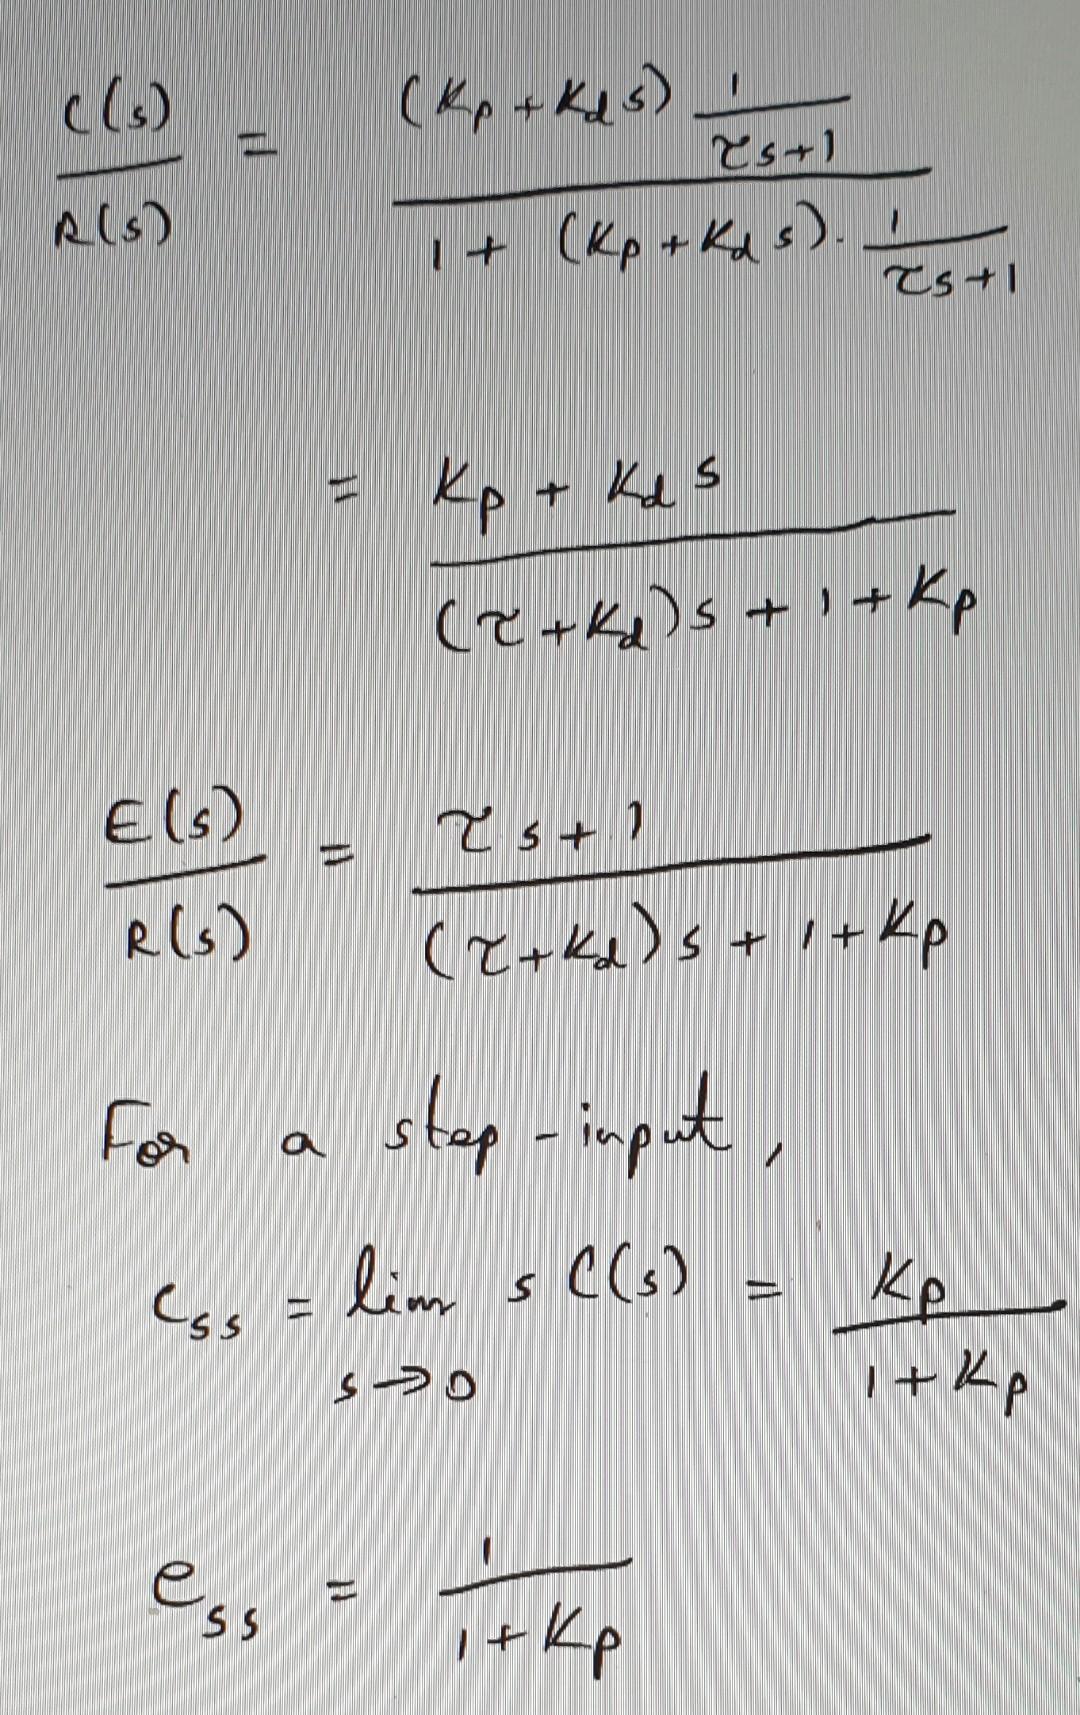 C(s)/R(s) = ((Kp + Kd s) 1/(τs+1)) / (1 + (Kp + Kd s) . 1/(τs+1))
= (Kp + Kd s) / ((τ + Kd)s + 1 + Kp)
E(s)/R(s) = (τs + 1) / ((τ + Kd)s + 1 + Kp)
For a step-input,
Css = lim s→0 s C(s) = Kp / (1 + Kp)
ess = 1 / (1 + Kp)